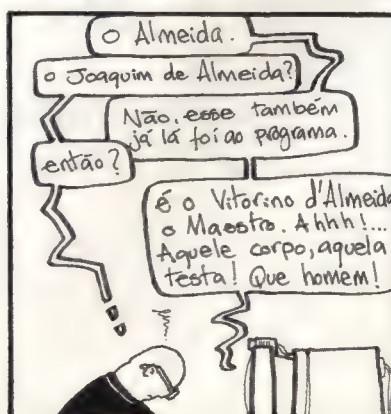 o Almeida.
o Joaquim de Almeida?
Não, esse também
já lá foi ao programa.
então?
é o Vitorino d'Almeida
o Maestro. Ahhh!...
Aquele corpo, aquela
testa! Que homem!